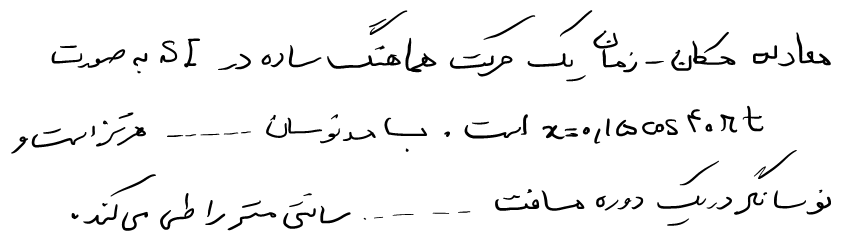 معادله مکان - زمان یک حرکت هماهنگ ساده در SI به صورت
x=۰٫۱۵cos۴۰πt است . بسامد نوسان ----- هرتز است و
نوسانگر در یک دوره مسافت ----- سانتی متر را طی می کند.